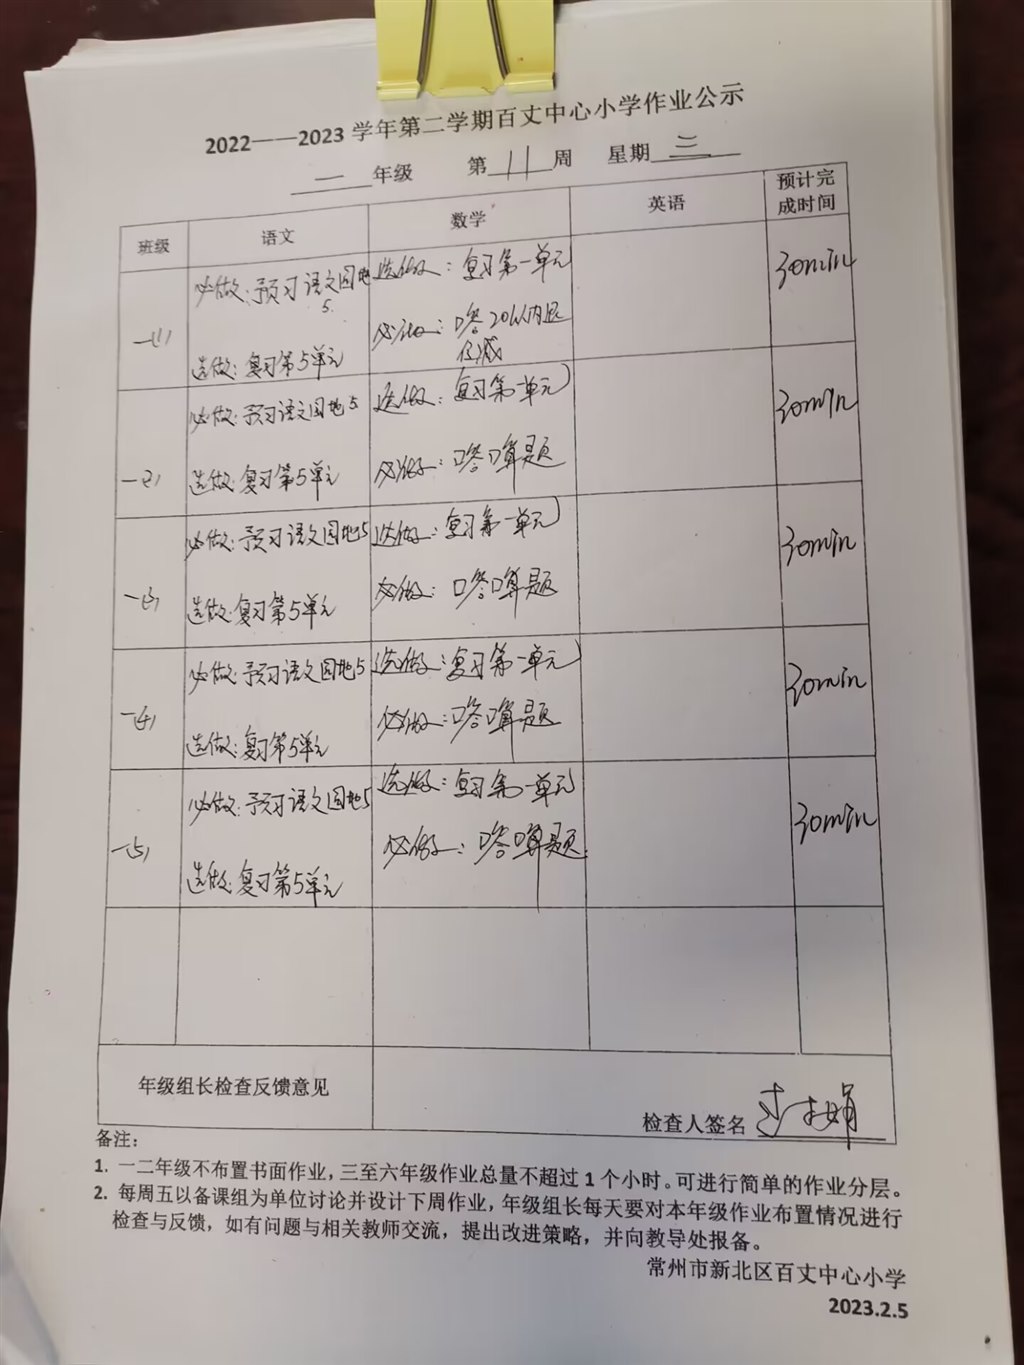 2022——2023 学年第二学期百丈中心小学作业公示
一 年级 第 11 周 星期 三
班级 语文 数学 英语 预计完成时间
一(1) 必做:预习语文园地5 选做:复习第一单元 30min
选做:复习第5单元 必做:口答20以内退位减
一(2) 必做:预习语文园地5 选做:复习第一单元 30min
选做:复习第5单元 必做:口答口算题
一(3) 必做:预习语文园地5 选做:复习第一单元 30min
选做:复习第5单元 必做:口答口算题
一(4) 必做:预习语文园地5 选做:复习第一单元 30min
选做:复习第5单元 必做:口答口算题
一(5) 必做:预习语文园地5 选做:复习第一单元 30min
选做:复习第5单元 必做:口答口算题
年级组长检查反馈意见
检查人签名
备注:
1. 一二年级不布置书面作业,三至六年级作业总量不超过 1 个小时。可进行简单的作业分层。
2. 每周五以备课组为单位讨论并设计下周作业,年级组长每天要对本年级作业布置情况进行
检查与反馈,如有问题与相关教师交流,提出改进策略,并向教导处报备。
常州市新北区百丈中心小学
2023.2.5